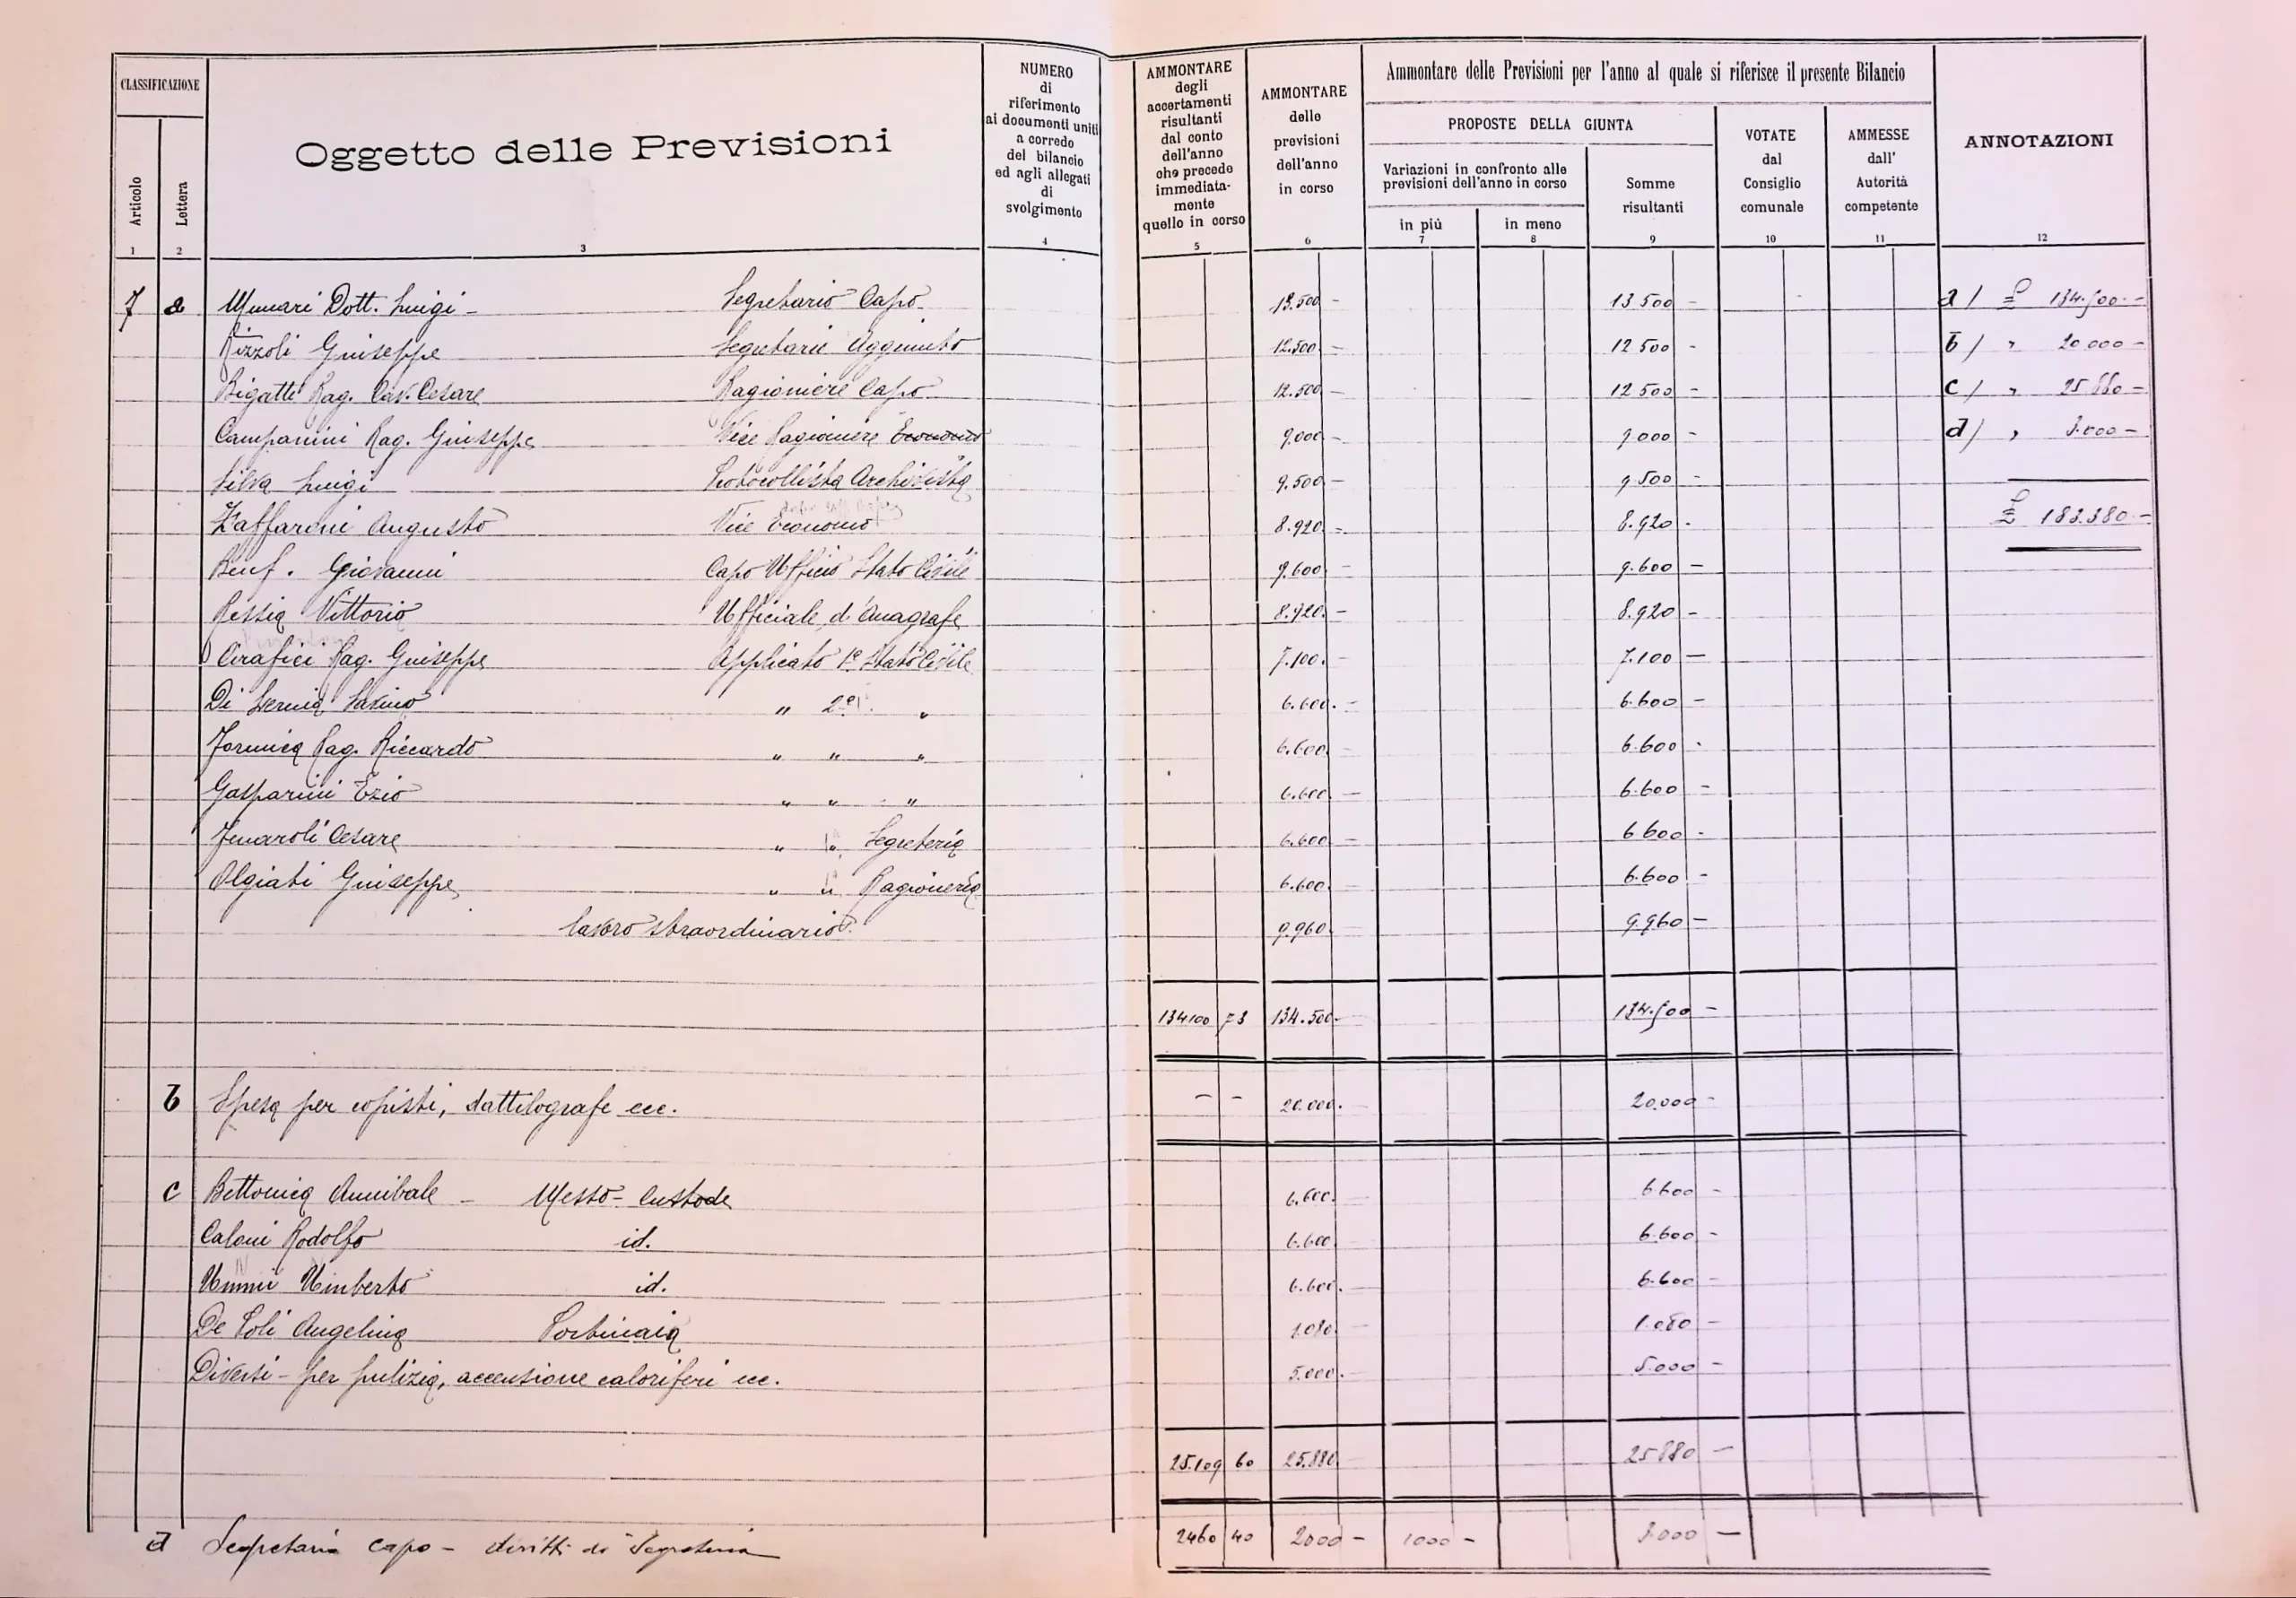 CLASSIFICAZIONE
Articolo
Lettera
Oggetto delle Previsioni
NUMERO
di
riferimento
ai documenti uniti
a corredo
del bilancio
ed agli allegati
di
svolgimento
AMMONTARE
degli
accertamenti
risultanti
dal conto
dell'anno
che precede
immediata-
mente
quello in corso
AMMONTARE
delle
previsioni
dell'anno
in corso
Ammontare delle Previsioni per l'anno al quale si riferisce il presente Bilancio
PROPOSTE DELLA GIUNTA
Variazioni in confronto alle
previsioni dell'anno in corso
in più
in meno
Somme
risultanti
VOTATE
dal
Consiglio
comunale
AMMESSE
dall'
Autorità
competente
ANNOTAZIONI
1 2 3 4 5 6 7 8 9 10 11 12
7 a Munari Dott. Luigi - Segretario Capo 13.500 - 13.500 - a/ £ 134.500 -
Rizzoli Giuseppe Segretario Aggiunto 12.500 - 12.500 - b/ " 20.000 -
Bigatti Rag. Cav. Cesare Ragioniere Capo 12.500 - 12.500 - c/ " 25.880 -
Campanini Rag. Giuseppe Vice Ragioniere Economo 9.000 - 9.000 - d/ " 3.000 -
Silva Luigi Protocollista Archivista 9.500 - 9.500 -
Zaffaroni Augusto Vice Economo 8.920 - 8.920 - £ 183.380 -
Giovanni Capo Ufficio Stato Civile 9.600 - 9.600 -
Ressia Vittorio Ufficiale d'Anagrafe 8.920 - 8.920 -
Cirafici Rag. Giuseppe Applicato 1° Stato Civile 7.100 - 7.100 -
Di Savino " 2° " 6.600 - 6.600 -
Formica Rag. Riccardo " " " 6.600 - 6.600 -
Gasparini Ezio " " " 6.600 - 6.600 -
Cesare " " Segreteria 6.600 - 6.600 -
Olgiati Giuseppe " " Ragioneria 6.600 6.600 -
lavoro straordinario 9.960 9.960 -
134100 73 134.500 - 134.500 -
b Spesa per copisti, dattilografe ecc. - - 20.000 - 20.000 -
c Bettonica Annibale - Messo - Custode 6.600 - 6.600 -
Caloni Rodolfo id. 6.600 6.600 -
Umberto id. 6.600 - 6.600 -
De Poli Angelina Portinaia 1.080 1.080 -
Diversi - per pulizia, accensione caloriferi ecc. 5.000 - 5.000 -
25.109 60 25.880 25880 -
d Segretario Capo - diritti di Segreteria 2460 40 2000 - 1000 - 3.000 -